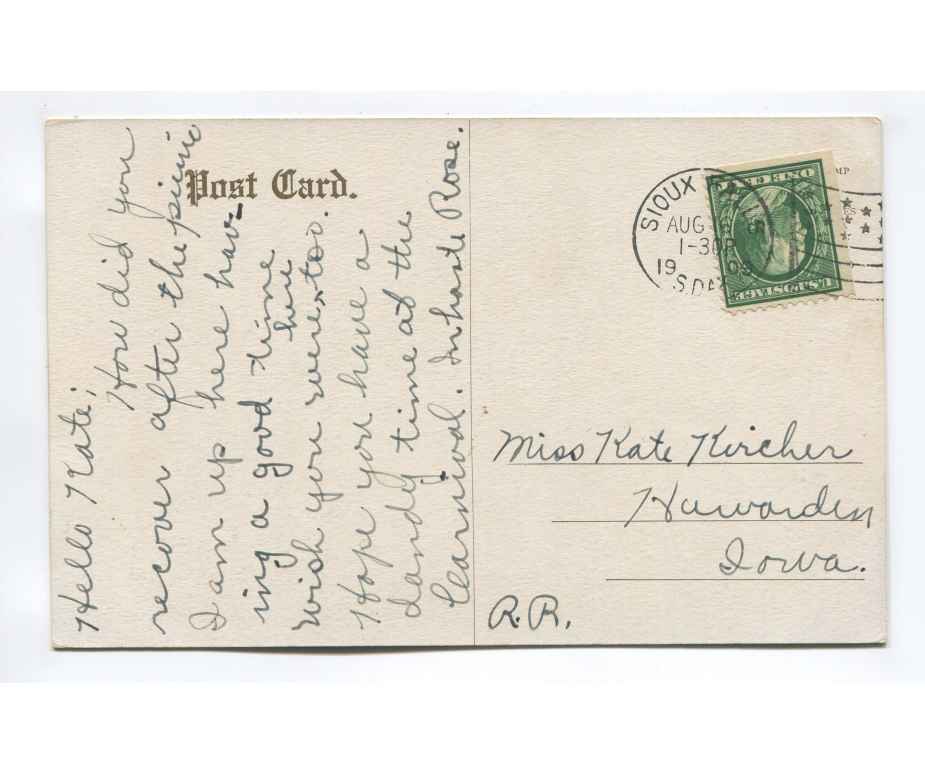 Post Card.
Hello Kate;
How did you
recover after the picnic
I am up here hav-
ing a good time
wish you were here too.
Hope you have a
dandy time at the
Carnival. In haste Rose.
SIOUX
AUG
1-30P
19 09
S.DAK
ONE CENT
U.S. POSTAGE
Miss Kate Kircher
Hawarden
Iowa.
R.R.